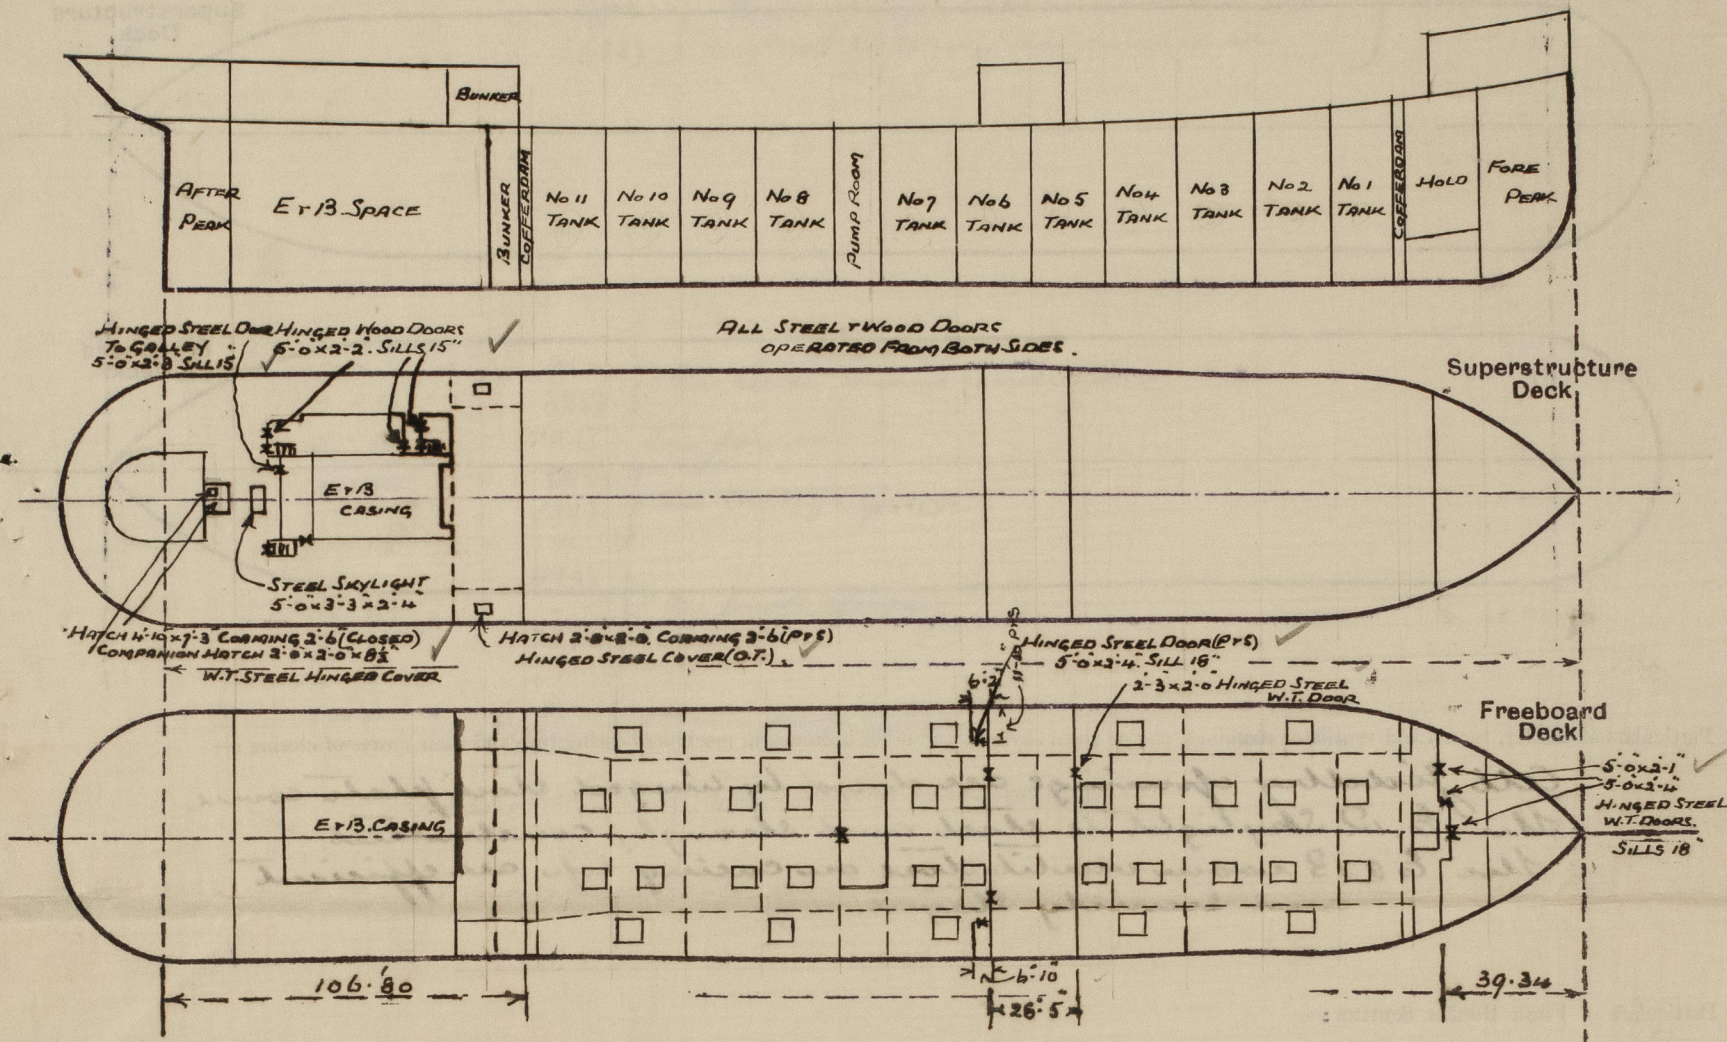 BUNKER
AFTER
PEAK
E & B. SPACE
BUNKER
COFFERDAM
No 11
TANK
No 10
TANK
No 9
TANK
No 8
TANK
PUMP ROOM
No 7
TANK
No 6
TANK
No 5
TANK
No 4
TANK
No 3
TANK
No 2
TANK
No 1
TANK
COFFERDAM
HOLD
FORE
PEAK
HINGED STEEL DOOR
TO GALLEY
5'-0"x2'-3" SILL 15"
HINGED WOOD DOORS
5'-0"x2'-2". SILLS 15"
ALL STEEL & WOOD DOORS
OPERATED FROM BOTH SIDES.
Superstructure
Deck
E & B
CASING
STEEL SKYLIGHT
5'-0"x3'-3"x2'-4"
HATCH 4'-10"x7'-3" COAMING 2'-6" (CLOSED)
COMPANION HATCH 2'-0"x2'-0"x8½"
W.T. STEEL HINGED COVER
HATCH 2'-0"x2'-0". COAMING 2'-6" (P&S)
HINGED STEEL COVER (O.T.).
HINGED STEEL DOOR (P&S)
5'-0"x2'-4". SILL 18"
2'-3"x2'-0" HINGED STEEL
W.T. DOOR
6'-2"
P&S
Freeboard
Deck
E & B. CASING
5'-0"x2'-1"
5'-0"x2'-4"
HINGED STEEL
W.T. DOORS.
SILLS 18"
106.'80
6'-10"
26'.5"
39.34